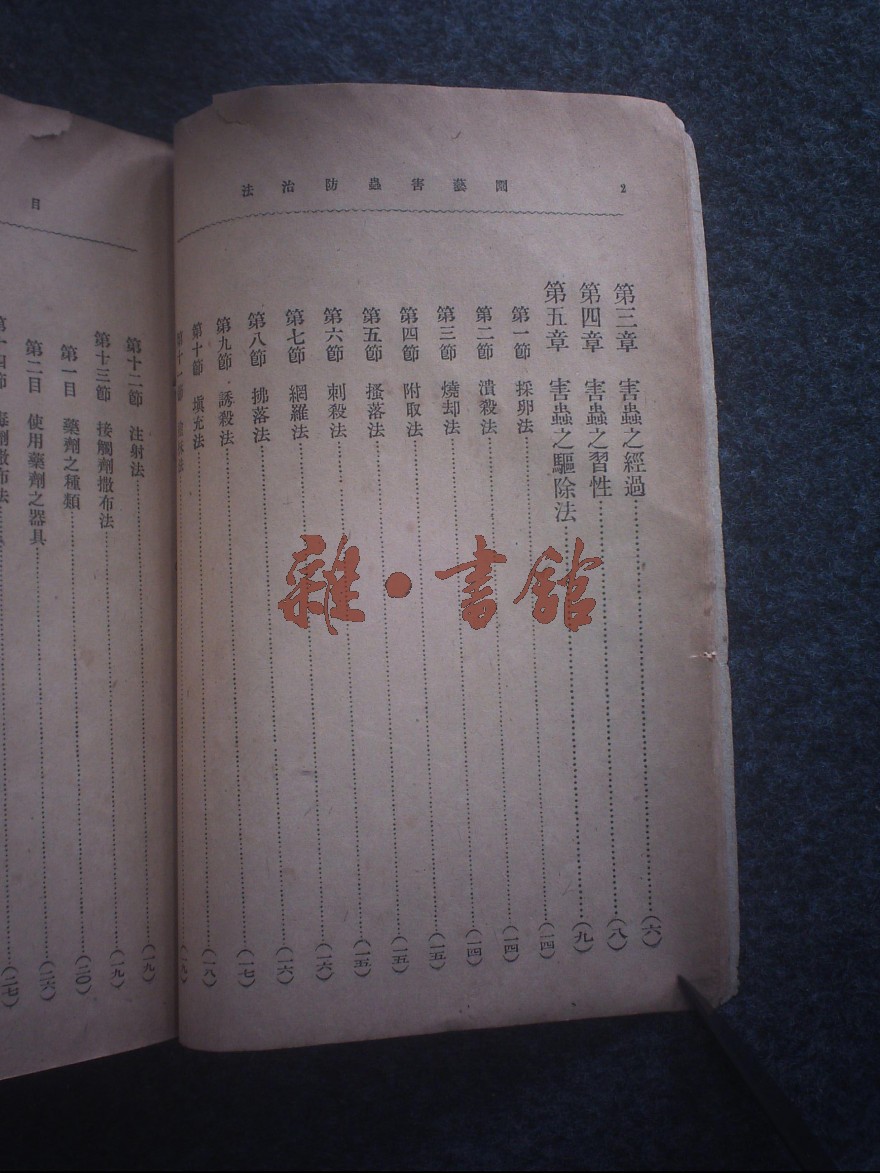 2 園藝害蟲防治法
第三章 害蟲之經過(六)
第四章 害蟲之習性(八)
第五章 害蟲之驅除法(九)
第一節 採卵法(一四)
第二節 潰殺法(一四)
第三節 燒却法(一五)
第四節 附取法(一五)
第五節 搔落法(一五)
第六節 刺殺法(一六)
第七節 網羅法(一六)
第八節 拂落法(一七)
第九節 誘殺法
第十節 塡充法(一八)
第十一節
目
第十二節 注射法(一九)
第十三節 接觸劑撒布法(一九)
第一目 藥劑之種類(二〇)
第二目 使用藥劑之器具(二六)
第十四節 毒劑撒布法(二七)
雜·書館